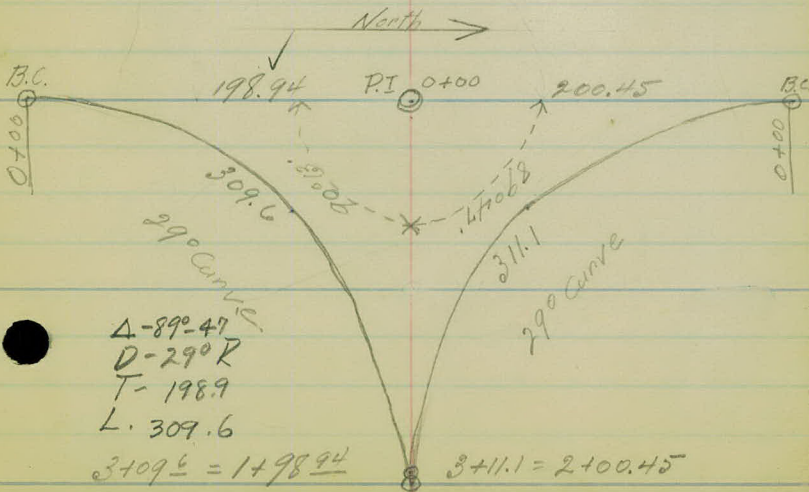 North
B.C. 198.94 P.I 0+00 200.45 B.C
0+00
0+00
309.6
90°13'
89°47'
311.1
29° Curve
29° Curve
Δ-89°-47
D-29° R
T- 198.9
L. 309.6
3+09 6 = 1+98 94
3+11.1 = 2+00.45